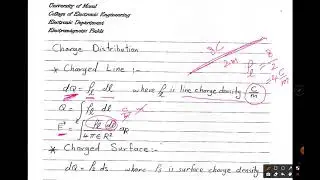 University of Mosul
College of Electronic Engineering
Electronic Department
Electromagnetic Fields
Charge Distribution
* Charged Line :-
3C
2m
dQ = ρl dl where ρl is line charge density C/m
Q = ∫ ρl dl
E = ∫ ρl dl / 4πϵR² aR
* Charged Surface :-
dQ = ρs ds where ρs is surface charge density